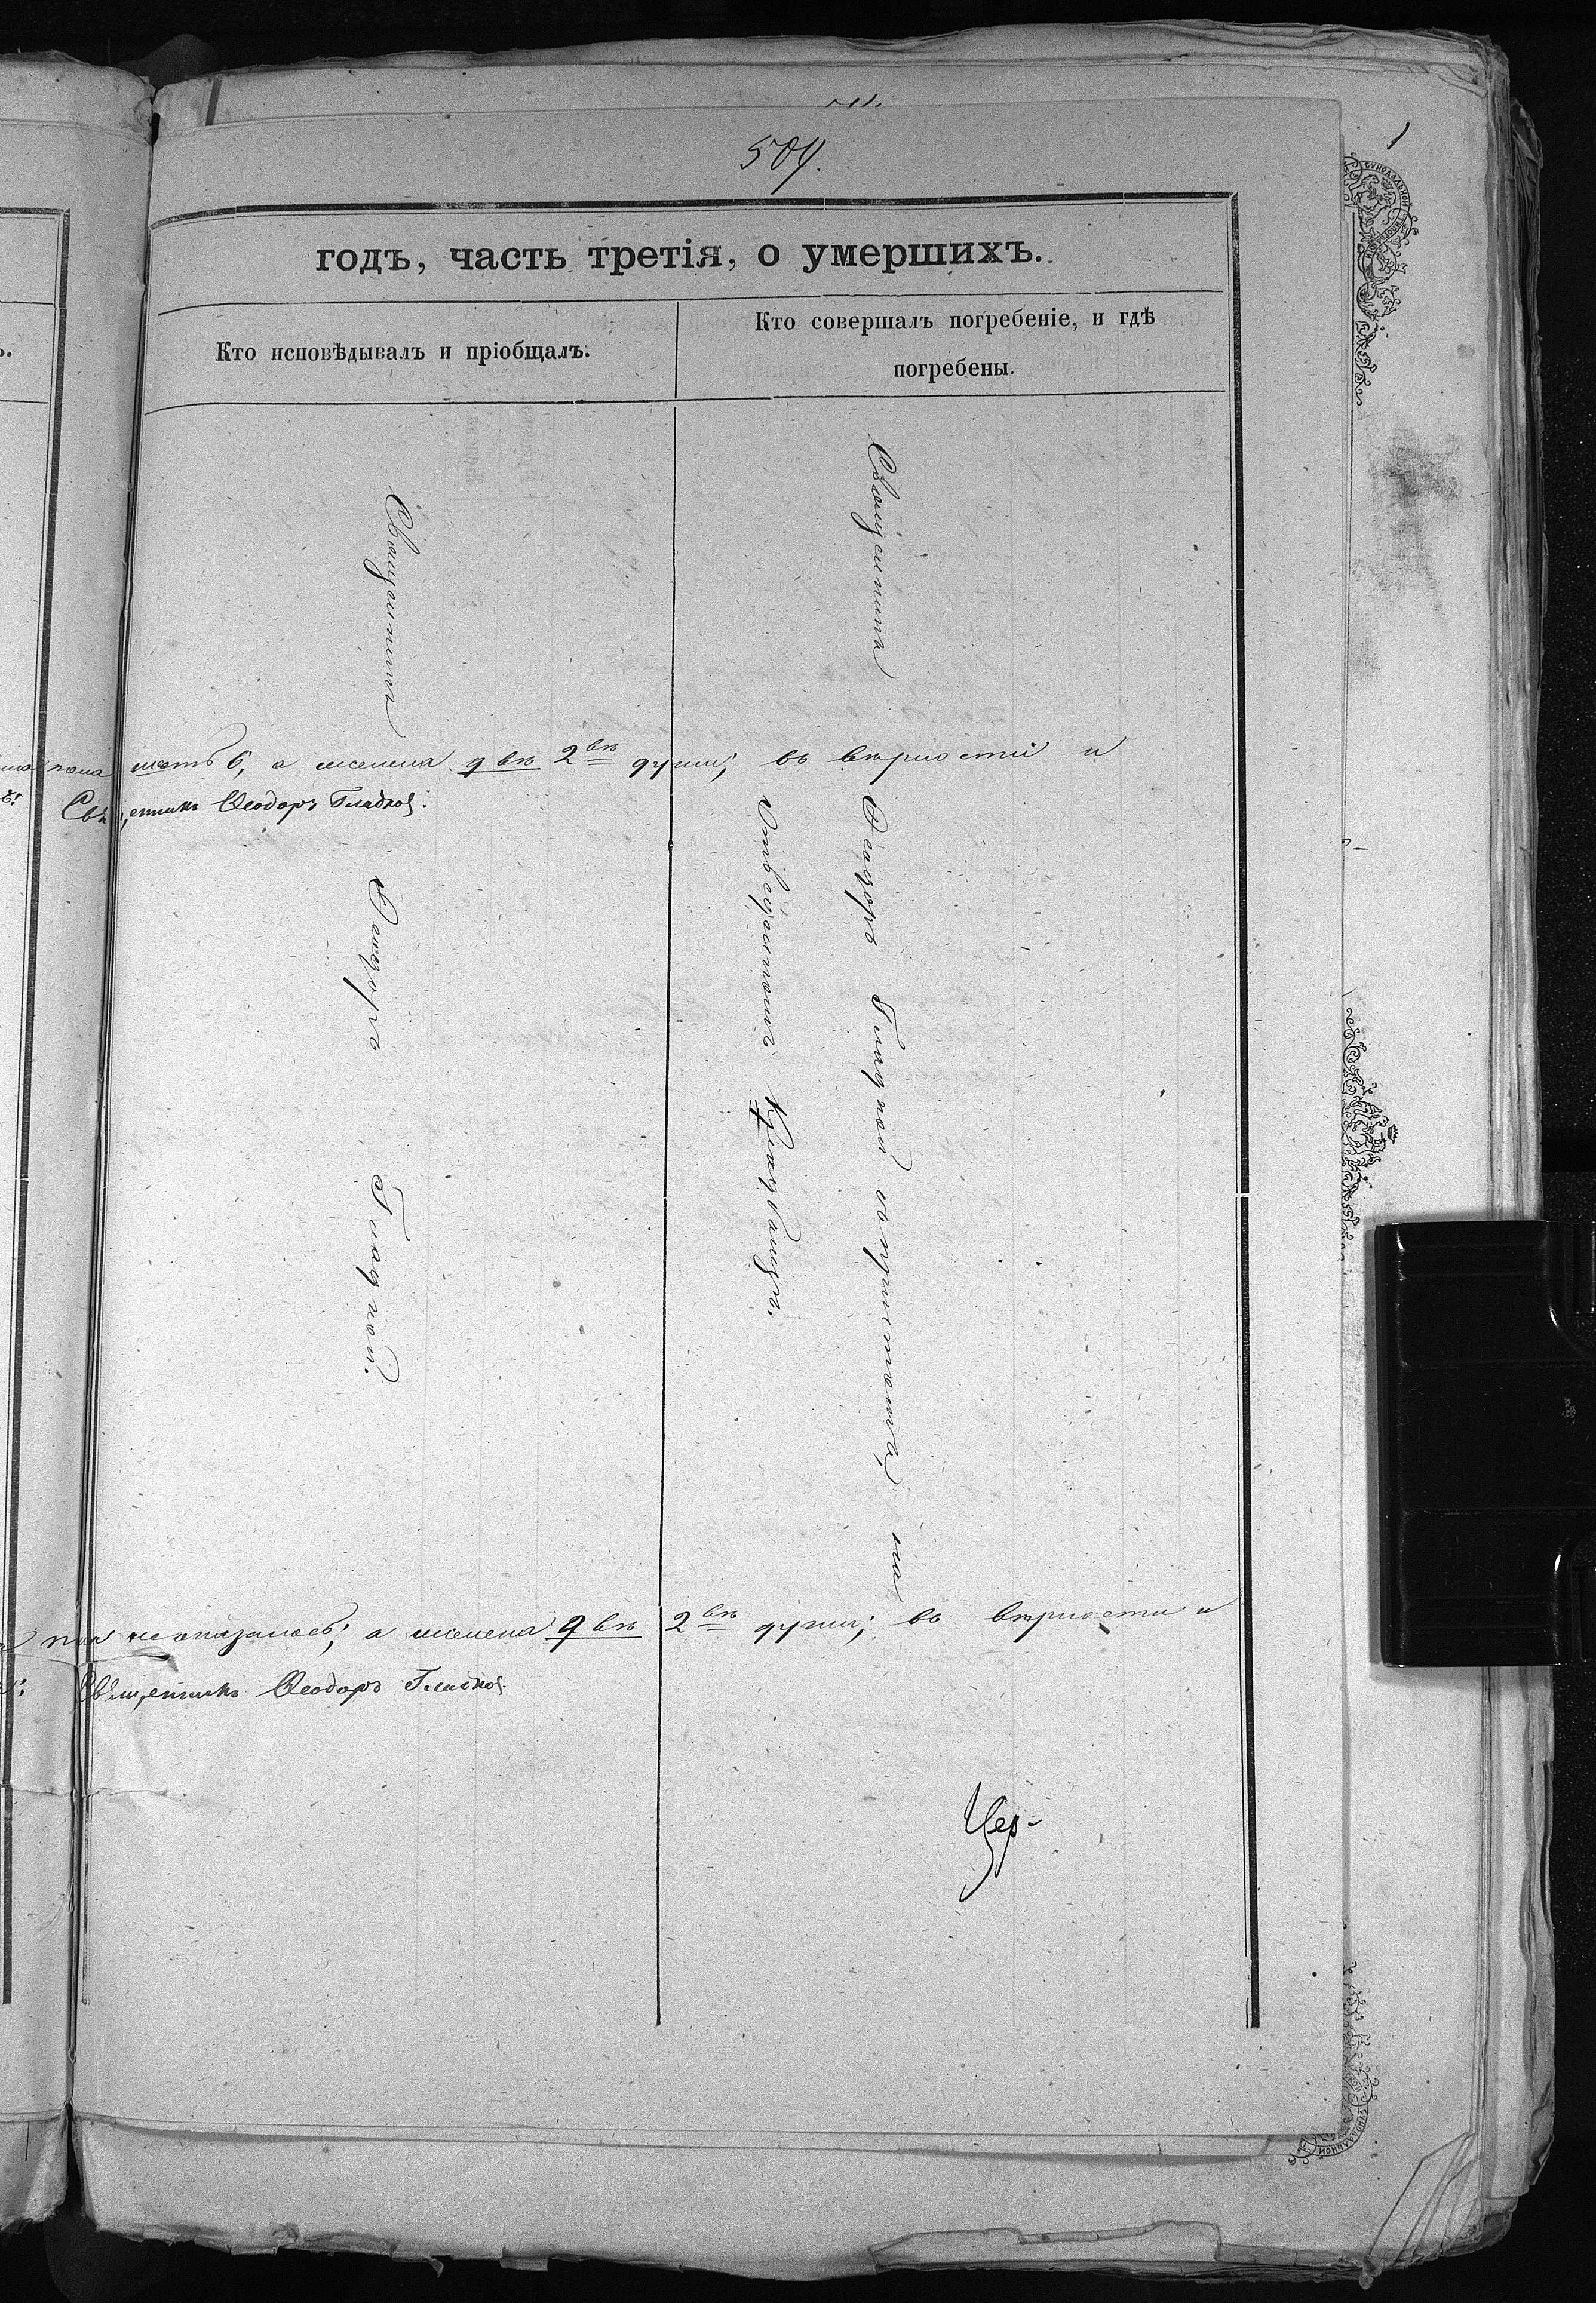 504.
годъ, часть третія, о умершихъ.
Кто исповѣдывалъ и пріобщалъ.
Кто совершалъ погребеніе, и гдѣ
погребены.
Священникъ
Ѳеодоръ Гладкой.
Священникъ Ѳеодоръ Гладкой съ причтомъ, на
Отведенномъ Кладбищѣ.
шесть 6, а женска двѣ 2вѣ души; въ вѣрности и
Священникъ Ѳеодоръ Гладкой.
не оказалось; а женска двѣ 2вѣ души; въ вѣрности и
Священникъ Ѳеодоръ Гладкой
Цер-